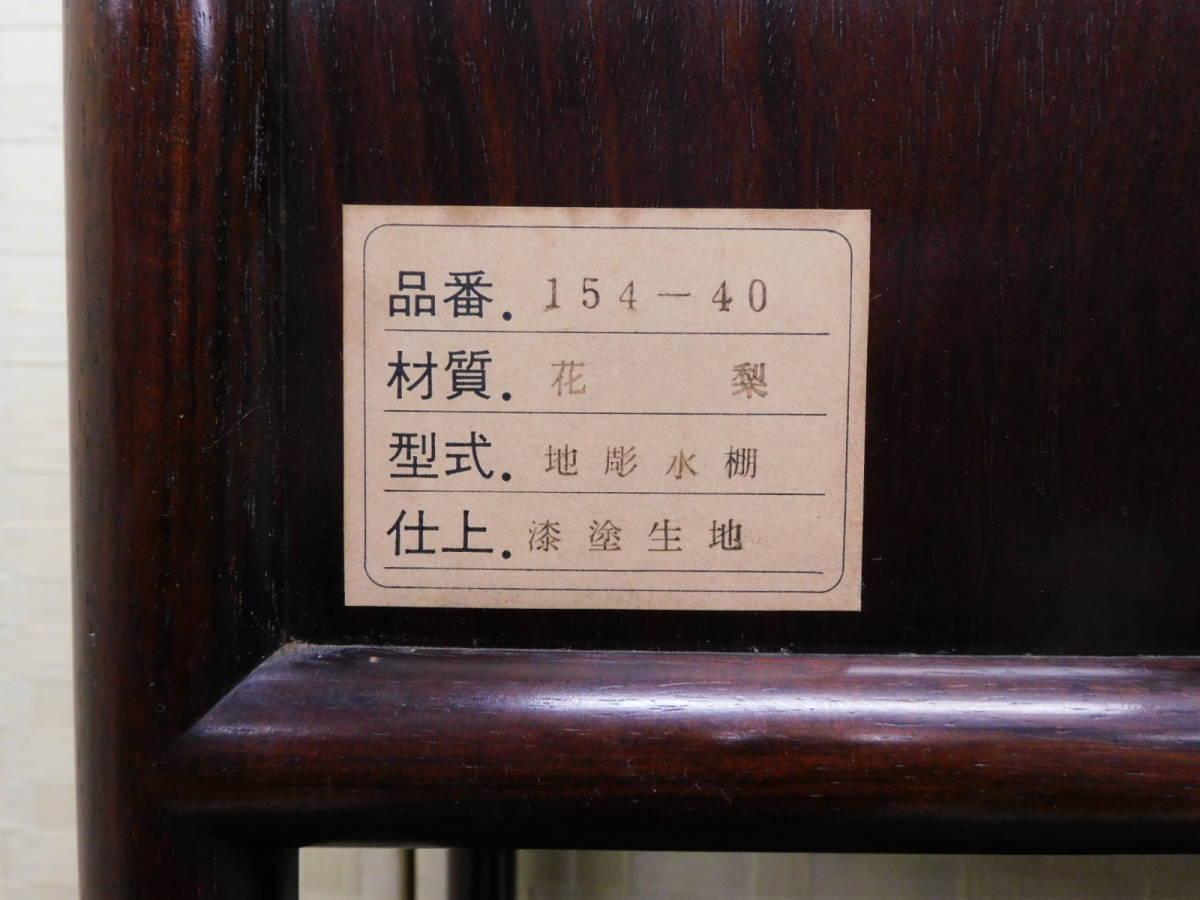 品番. 154-40
材質. 花 梨
型式. 地彫水棚
仕上. 漆塗生地